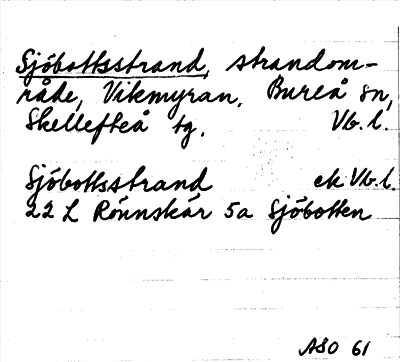 Sjöbottsstrand, strandom-
råde, Vikmyran, Bureå sn,
Skellefteå tg.    Vb. l.
Sjöbottsstrand    ek Vb. l.
22 L Rönnskär 5a Sjöbotten
ASO 61